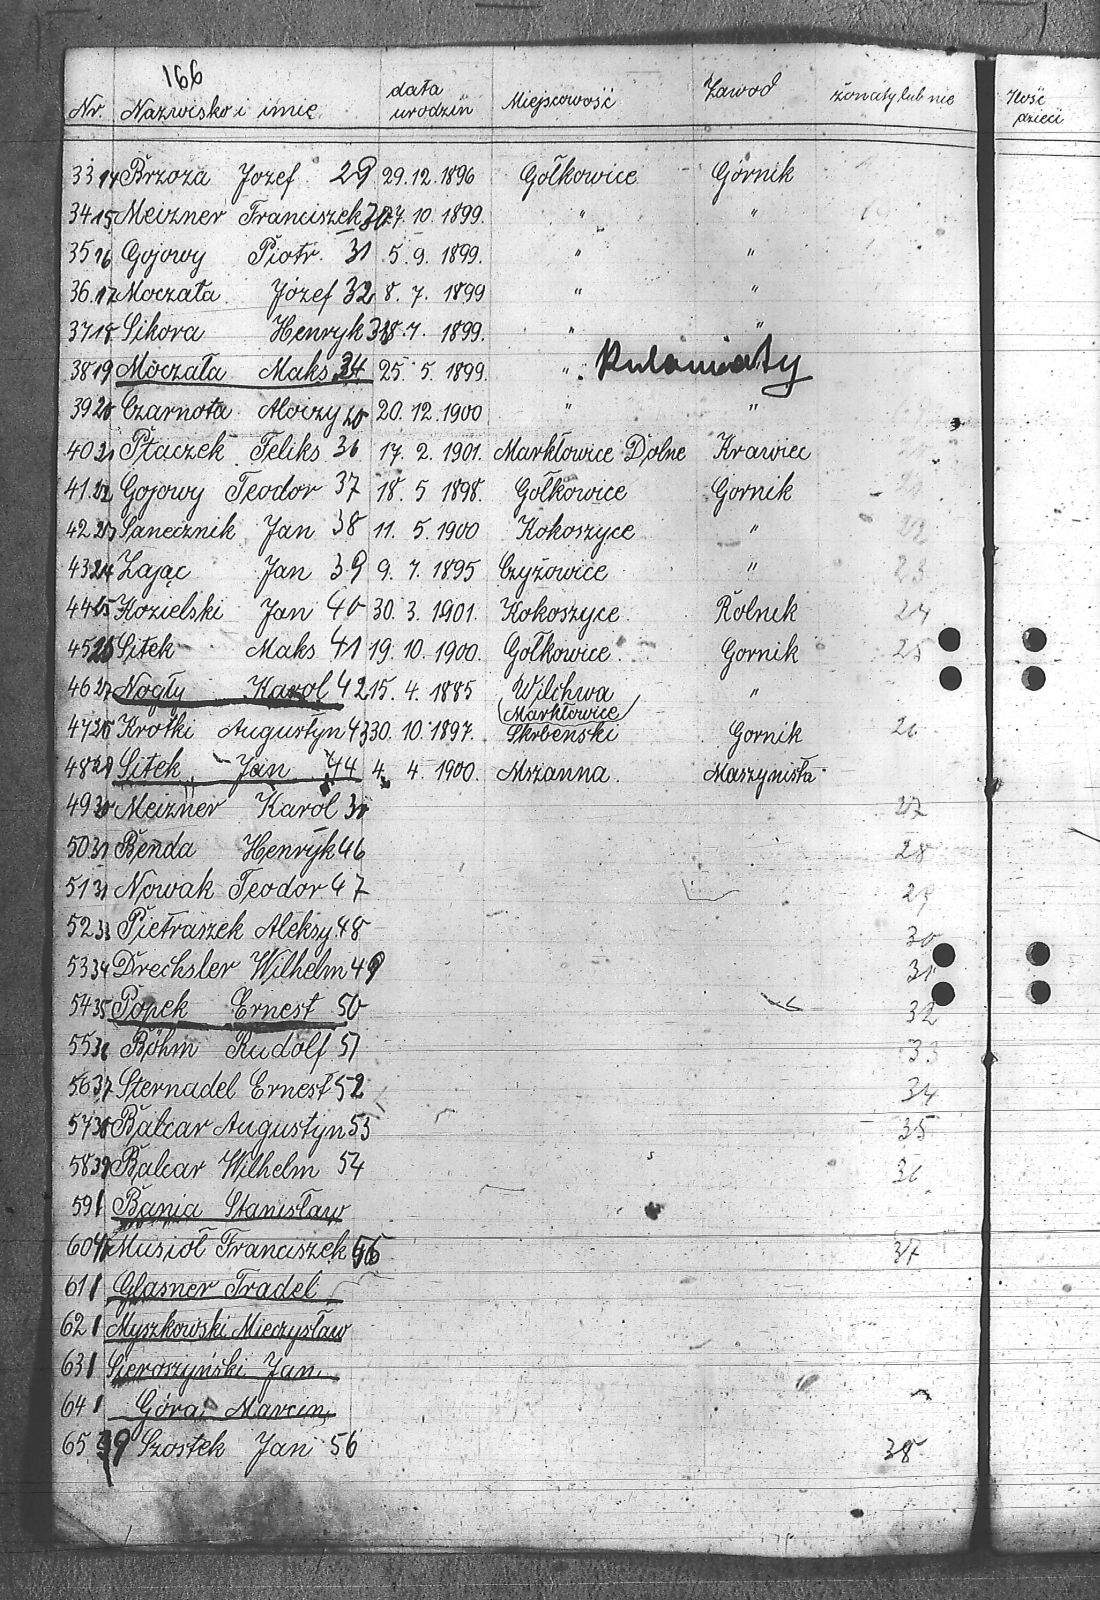 166
Nr. Nazwisko i imię data urodzin Miejscowość Zawod żonaty lub nie Ilość dzieci
33 14 Brzoza Jozef 29 29.12.1896 Gołkowice Górnik
34 15 Meizner Franciszek 30 27.10.1899. " "
35 16 Gojowy Piotr. 31 5.9.1899. " "
36. 17 Moczała Józef 32 8.7.1899 " "
37 18 Sikora Henryk 1899. " "
38 19 Moczała Maks. 34 25.5.1899. "
39 20 Czarnota Aloczy 20.12.1900 " "
40 21 Ptaczek Feliks 36 17.2.1901. Markłowice Dolne Krawiec
41. 22 Gojowy Teodor 37 18.5 1898. Gołkowice Gornik
42. 23 Sanecznik Jan 38 11.5.1900 Kokoszyce " 22
43 24 Zając Jan 39 9.7.1895 Czyżowice " 23
44 25 Kozielski Jan 40 30.3.1901. Kokoszyce Rolnik 24
45 Sitek Maks 41 19.10.1900. Gołkowice Gornik 25
46 27 Nogły Karol 42 15.4.1885 Wilchwa "
(Markłowice)
47 28 Krotki Augustyn 43 30.10.1897. Skrbenski Gornik 26
48 29 Sitek Jan 44 4.4.1900. Mszanna. Maszynista
49 30 Meizner Karol 27
50 31 Benda Henryk 46 28
51 Nowak Teodor 47 29
52 33 Pietraszek Aleksy. 48 30
53 34 Drechsler Wilhelm 49 31
54 35 Popek Ernest 50 32
55 36 Böhm Rudolf 51 33
56 37 Sternadel Ernest 52 34
57 38 Balcar Augustyn 53 35
58 39 Balcar Wilhelm 54 36
59 Bania Stanisław
60 Musioł Franciszek 37
61 Glasner Fradel
62 Myszkowski Mieczysław
63 Sieroszyński Jan
64 Góra Marcin
65 39 Szostek Jan 56 38